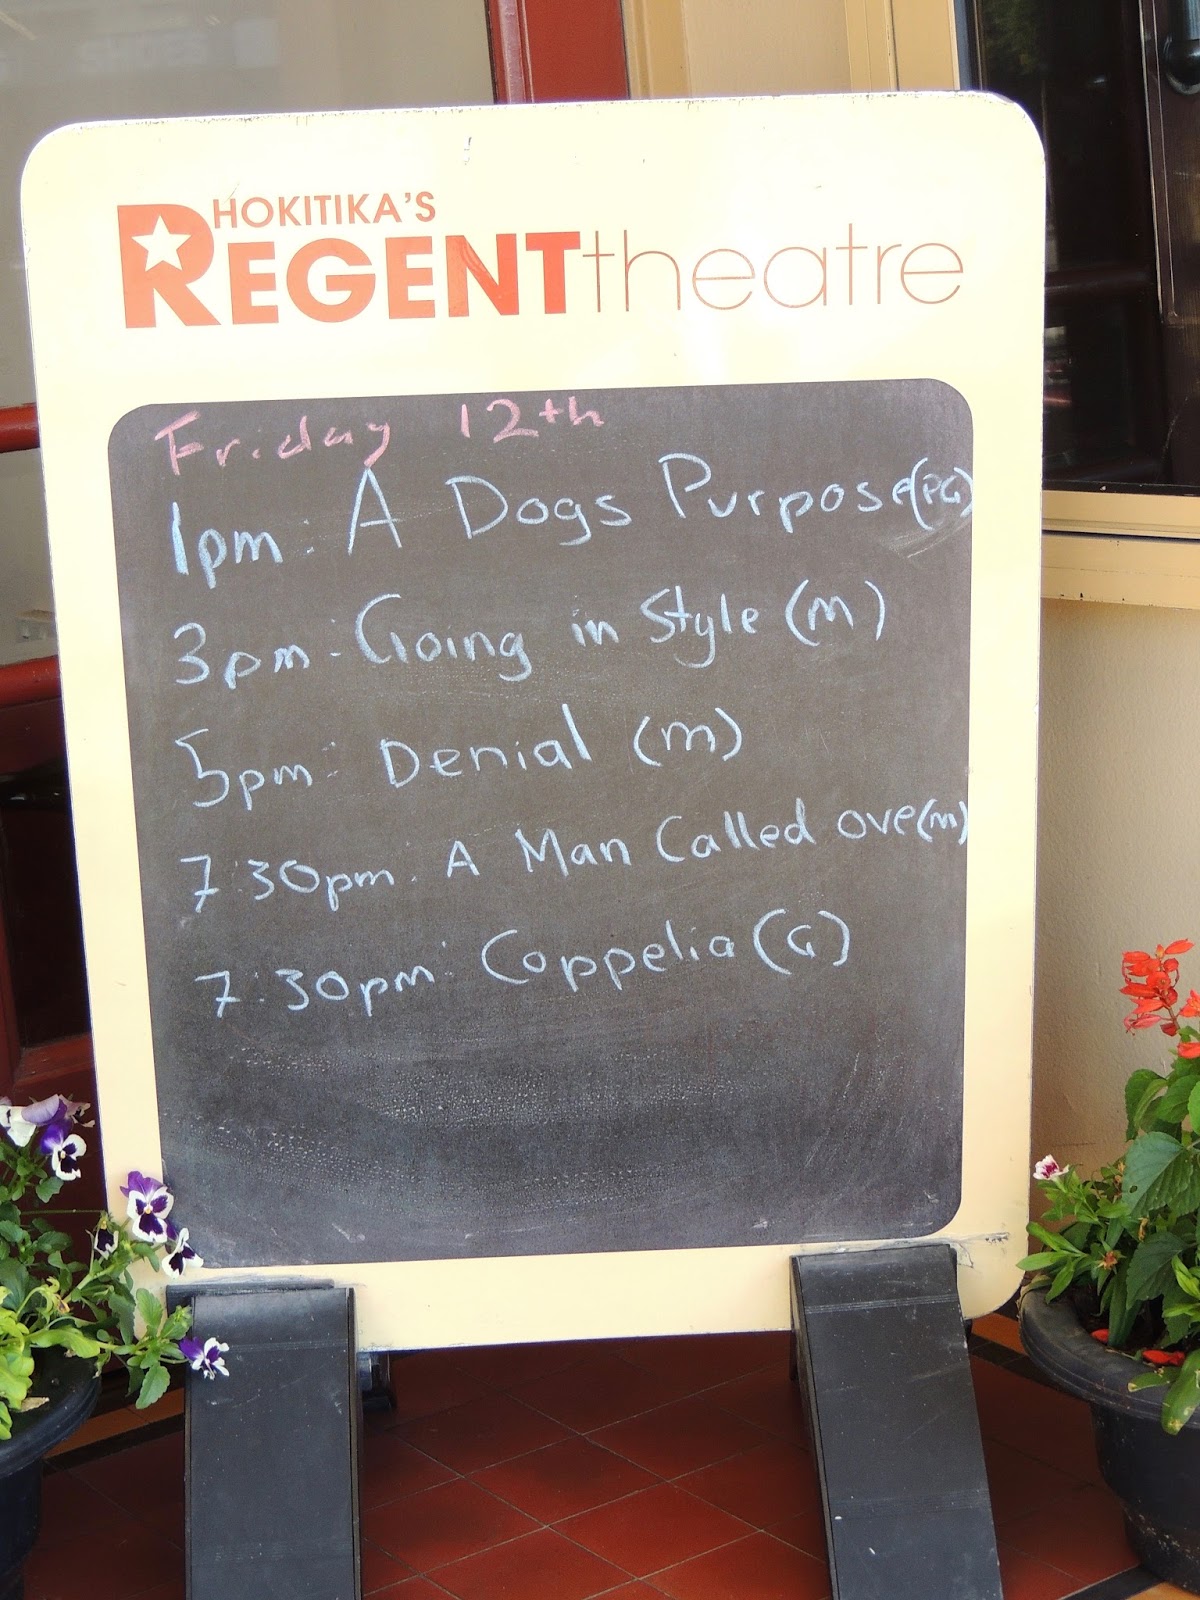 HOKITIKA'S
REGENTtheatre
Friday 12th
1pm: A Dogs Purpose(PG)
3pm: Going in Style (M)
5pm: Denial (M)
7:30pm: A Man Called ove(M)
7:30pm: Coppelia (G)